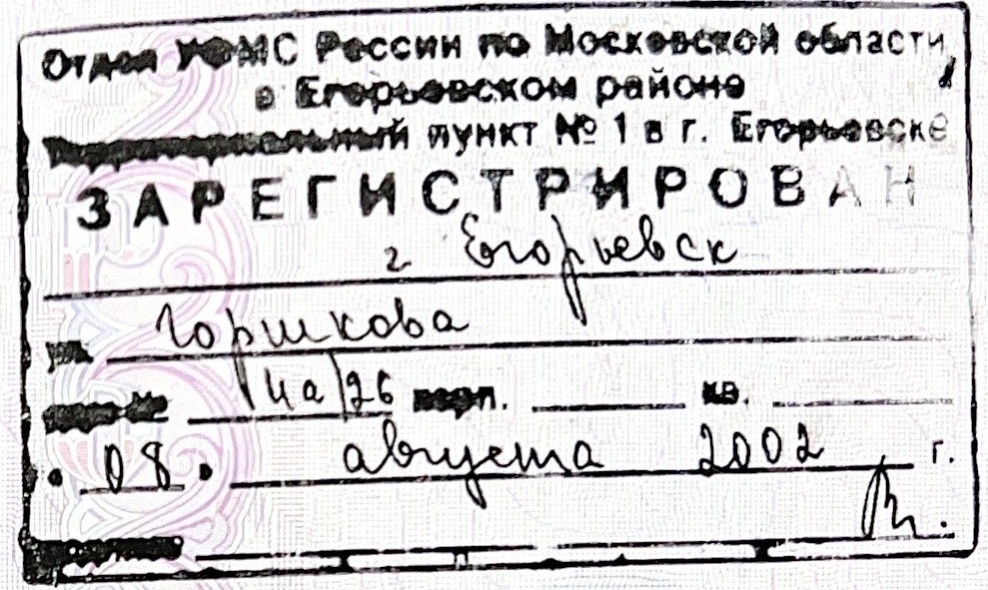 Отдел УФМС России по Московской области
в Егорьевском районе
Территориальный пункт № 1 в г. Егорьевске
ЗАРЕГИСТРИРОВАН
г Егорьевск
ул. Горшкова
корп. кв.
" 08 " августа 2002 г.